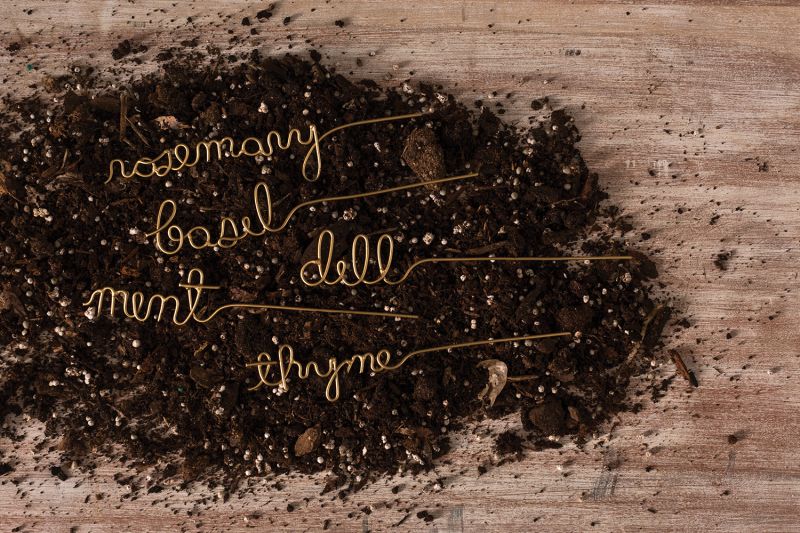 rosemary
basil
dill
mint
thyme